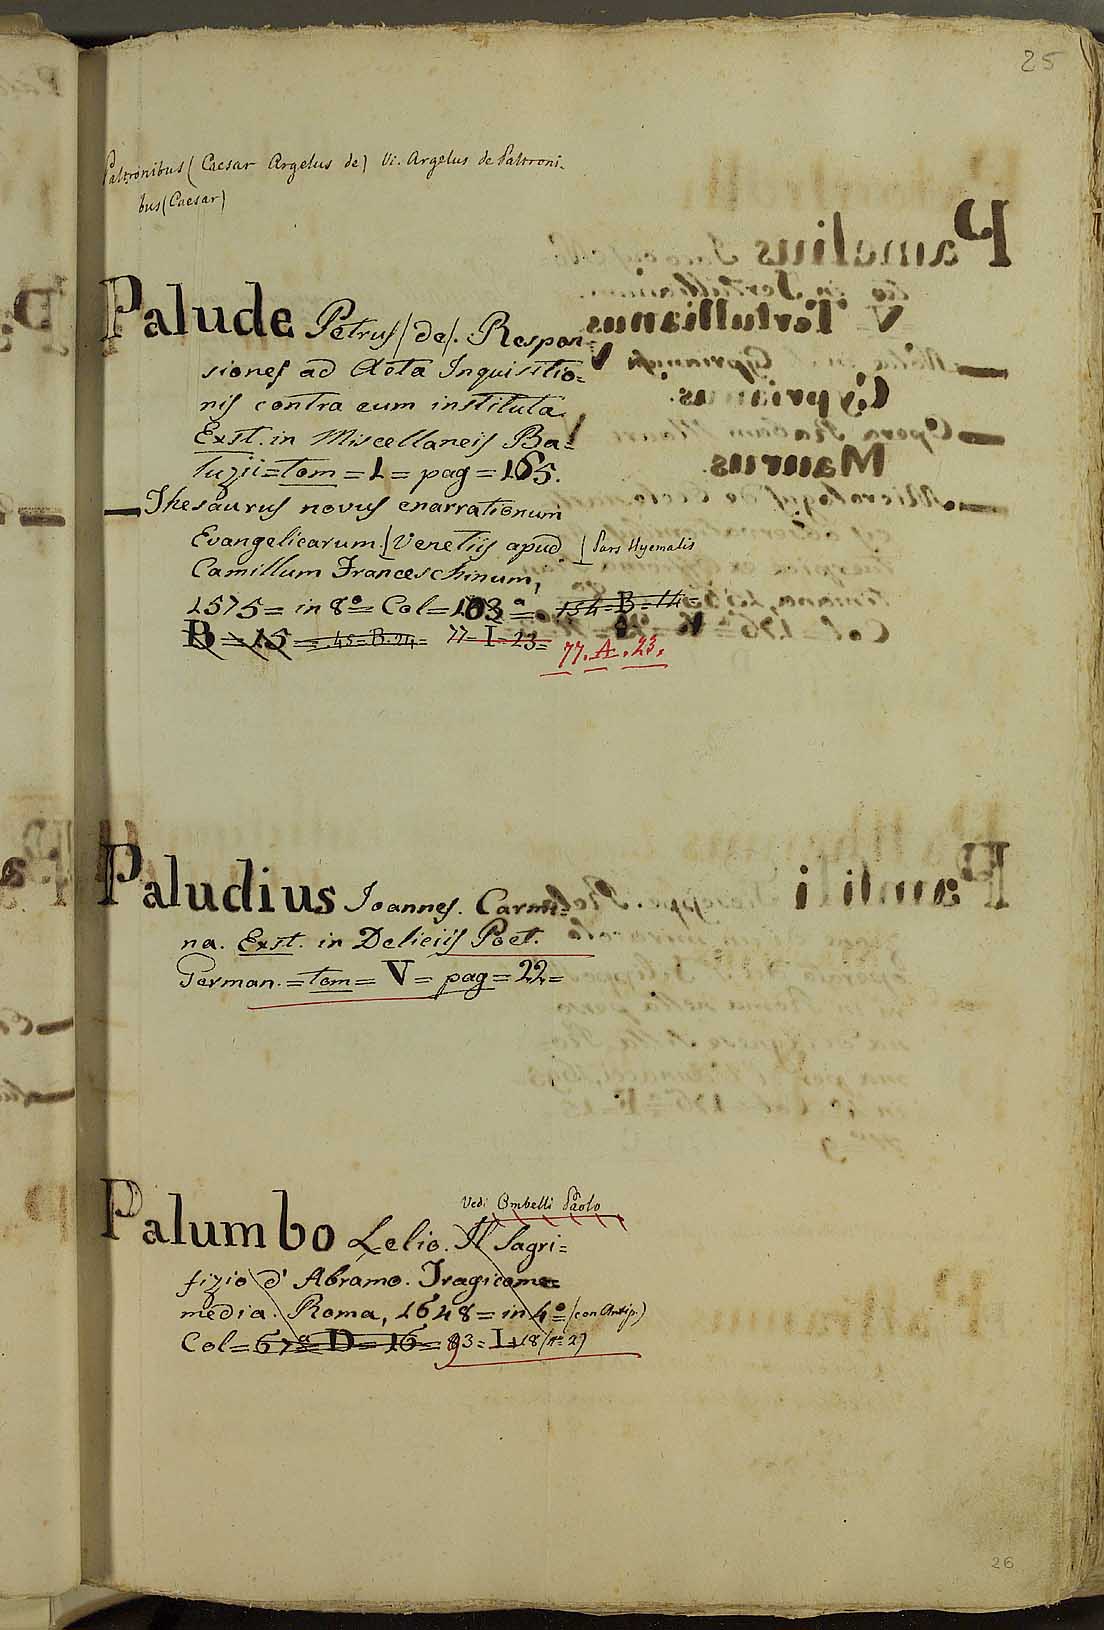 25
Paltronibus (Caesar Argelus de) Vi. Argelus de Paltroni-
bus (Caesar)
Palude Petrus (de). Respon-
siones ad Acta Inquisitio=
nis contra eum instituta.
Exst. in Miscellaneis Ba=
luzii = tom = 1 = pag = 165.
— Thesaurus novus enarrationum
Evangelicarum. Venetiis apud Pars Hyemalis
Camillum Franceschinum,
1575 = in 8° = Col = 103 = 154 = B = 14 =
B = 15 = 45 = B. 24 = 77 = I = 23 = 77. A. 23.
Paludius Joannes. Carmi=
na. Exst. in Deliciis Poet.
German. = tom = V = pag = 22 =
Vedi Ombelli Paolo
Palumbo Lelio. Il Sagri=
fizio d' Abramo. Tragicome=
media. Roma, 1648 = in 4° = (con Antip.)
Col = 678 = D = 16 = 93 = I = 18 (n° 2)
26